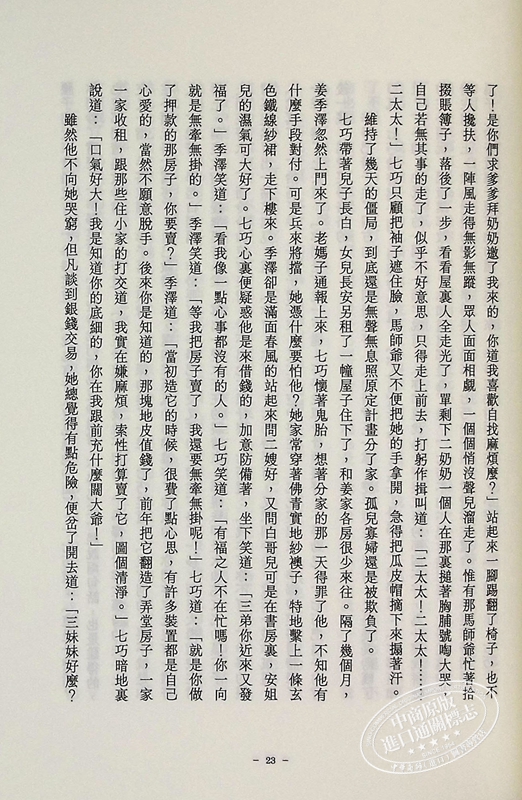 了！是你們求爹爹拜奶奶邀了我來的，你道我喜歡自找麻煩麼？」站起來一腳踢翻了椅子，也不
等人攙扶，一陣風走得無影無蹤，眾人面面相覷，一個個悄沒聲兒溜走了。惟有那馬師爺忙著拾
掇賬簿子，落後了一步，看看屋裏人全走光了，單剩下二奶奶一個人在那裏搥著胸脯號啕大哭，
自己若無其事的走了，似乎不好意思，只得走上前去，打躬作揖叫道：「二太太！二太太！……
二太太！」七巧只顧把袖子遮住臉，馬師爺又不便把她的手拿開，急得把瓜皮帽摘下來搧著汗。
維持了幾天的僵局，到底還是無聲無息照原定計畫分了家。孤兒寡婦還是被欺負了。
七巧帶著兒子長白，女兒長安另租了一幢屋子住下了，和姜家各房很少來往。隔了幾個月，
姜季澤忽然上門來了。老媽子通報上來，七巧懷著鬼胎，想著分家的那一天得罪了他，不知他有
什麼手段對付。可是兵來將擋，她憑什麼要怕他？她家常穿著佛青實地紗襖子，特地繫上一條玄
色鐵線紗裙，走下樓來。季澤卻是滿面春風的站起來問二嫂好，又問白哥兒可是在書房裏，安姐
兒的濕氣可大好了。七巧心裏便疑惑他是來借錢的，加意防備著，坐下笑道：「三弟你近來又發
福了。」季澤笑道：「看我像一點心事都沒有的人。」七巧笑道：「有福之人不在忙嗎！你一向
就是無牽無掛的。」季澤笑道：「等我把房子賣了，我還要無牽無掛呢！」七巧道：「就是你做
了押款的那房子，你要賣？」季澤道：「當初造它的時候，很費了點心思，有許多裝置都是自己
心愛的，當然不願意脫手。後來你是知道的，那塊地皮值錢了，前年把它翻造了弄堂房子，一家
一家收租，跟那些住小家的打交道，我實在嫌麻煩，索性打算賣了它，圖個清淨。」七巧暗地裏
說道：「口氣好大！我是知道你的底細的，你在我跟前充什麼闊大爺！」
雖然他不向她哭窮，但凡談到銀錢交易，她總覺得有點危險，便岔了開去道：「三妹妹好麼？
- 23 -
中商原版
進口通關標志